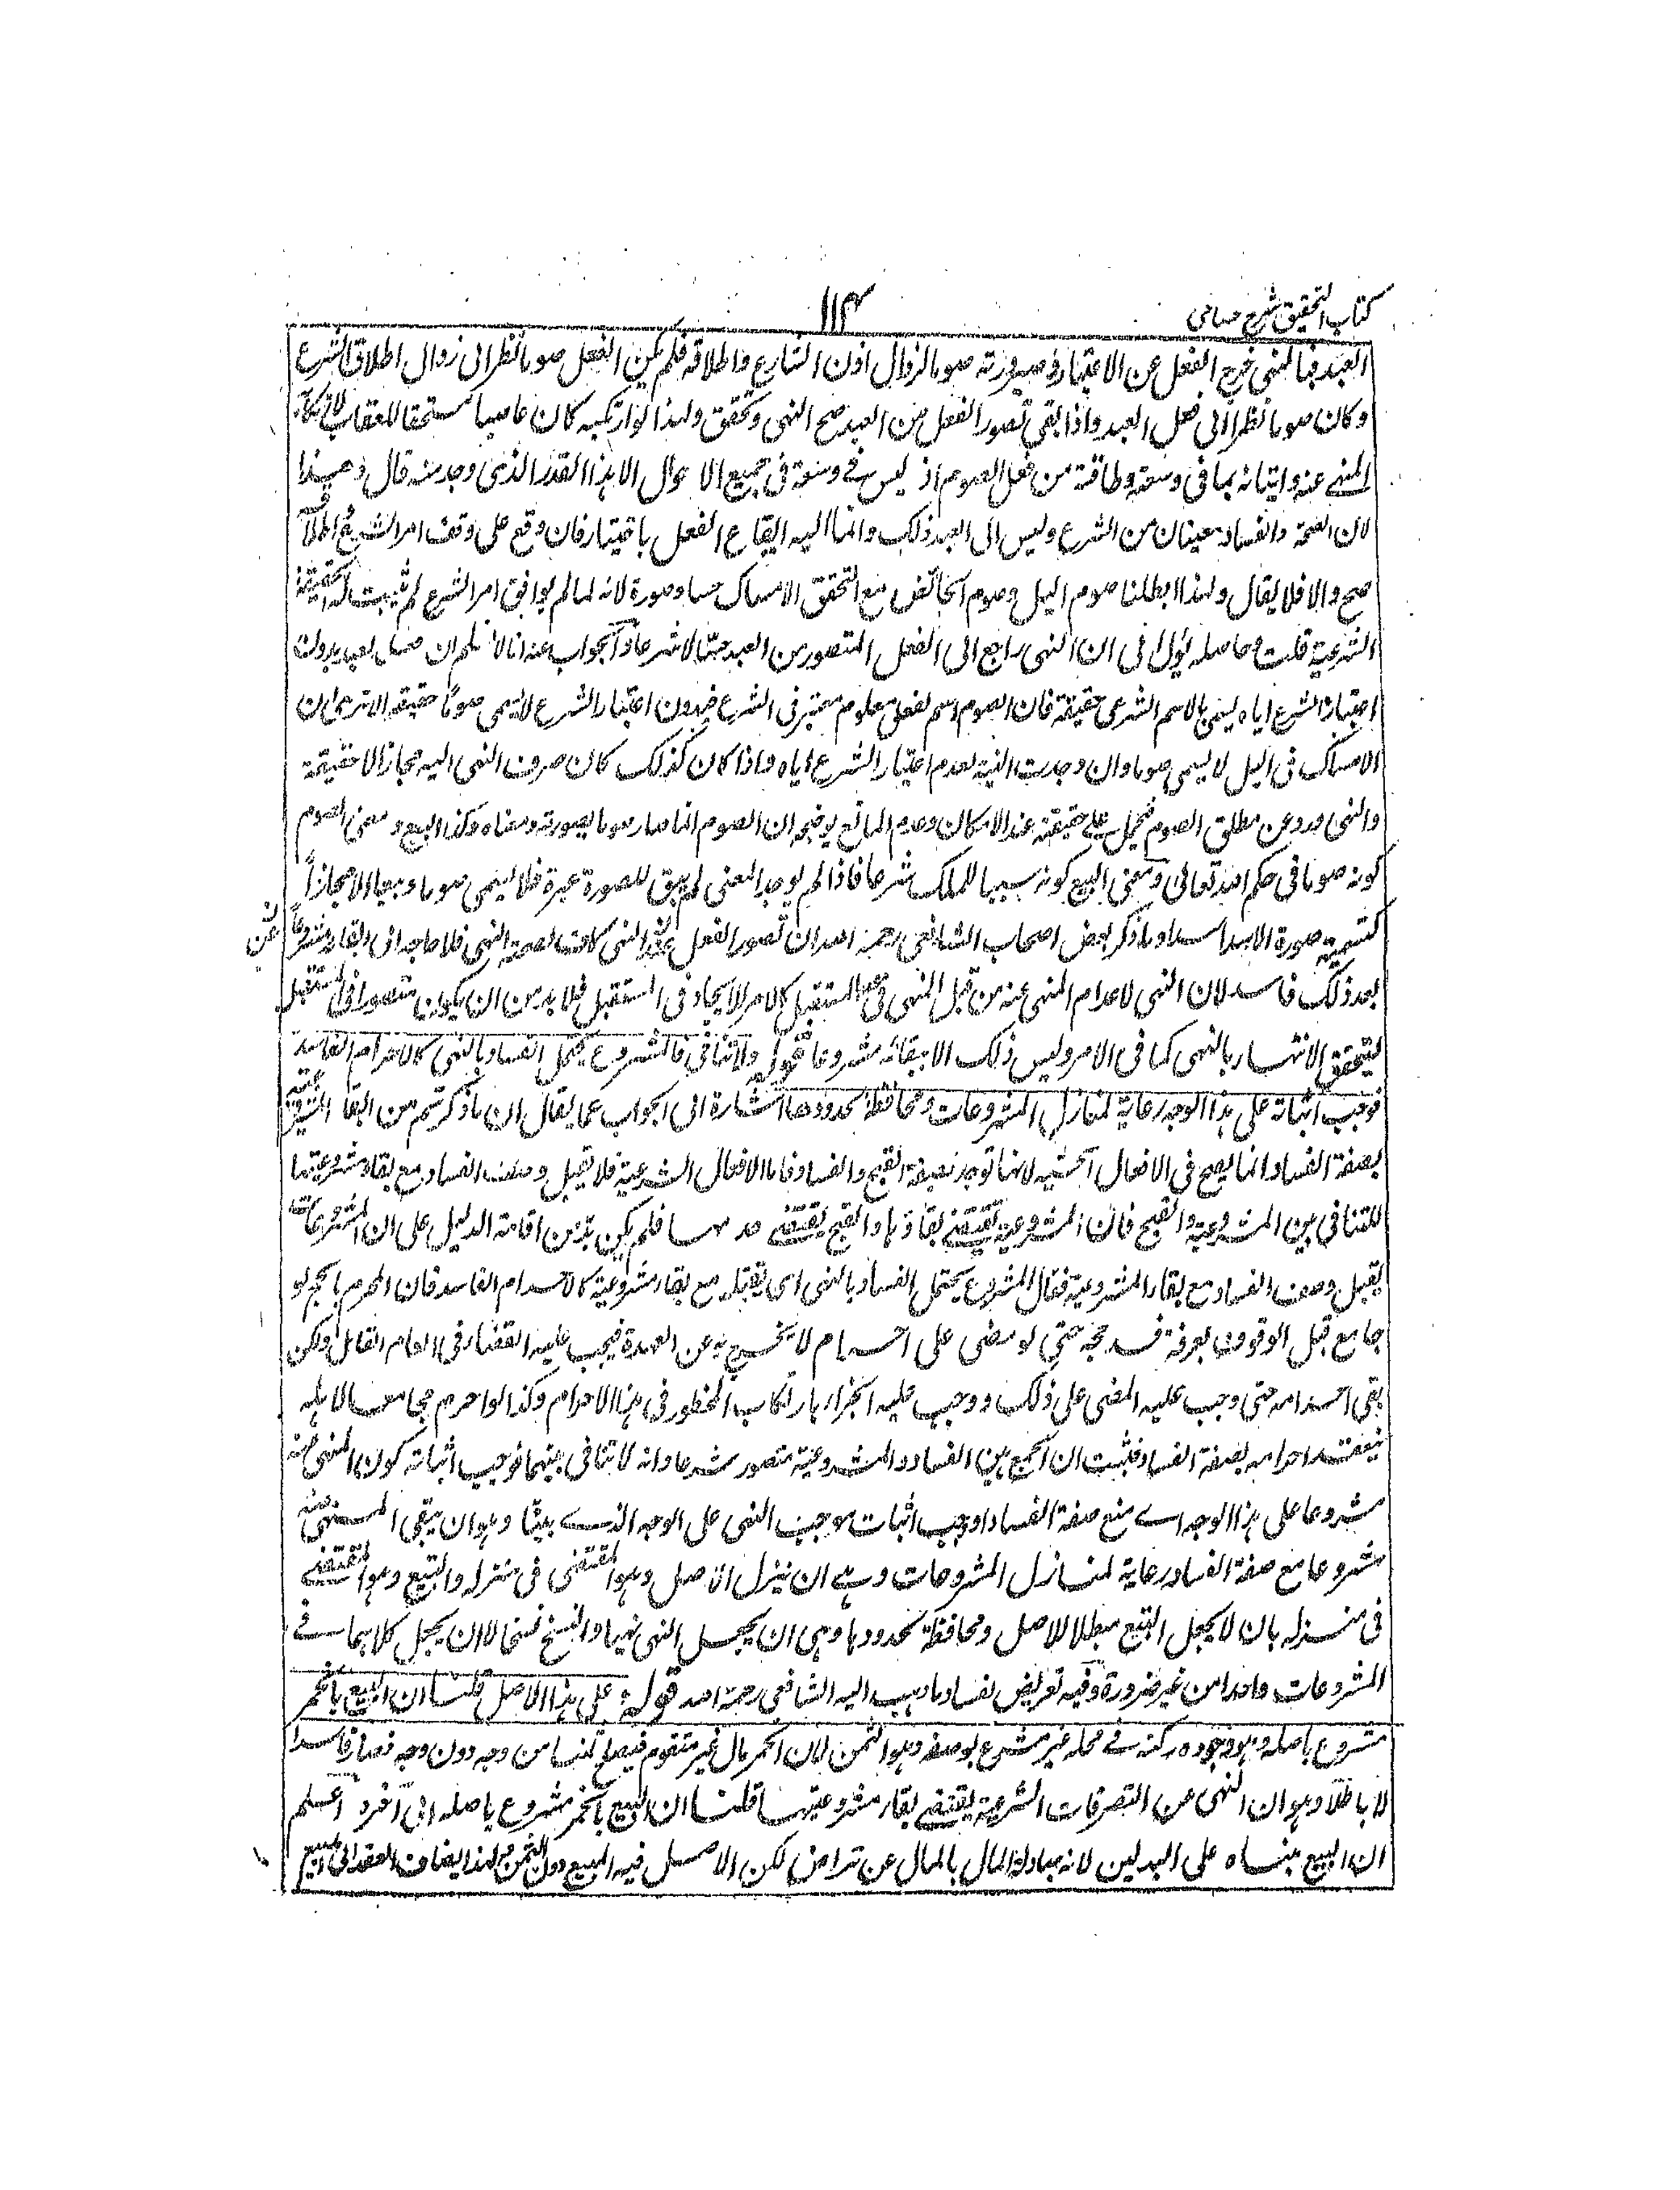 كتاب التحقيق شرح حسامى
١١٤
العبد فبالنهى خرج الفعل عن الاعتبار وصيرورته صوما لزوال اذن الشارع واطلاقه فلم يكن الفعل صوما نظرا الى زوال اطلاق الشرع
وكان صوما نظرا الى فعل العبد واذا بقى تصور الفعل من العبد صح النهى وتحقق ولهذا لو ارتكبه كان عاصيا مستحقا للعقاب لارتكابه
المنهى عنه واتيانه بما فى وسعه وطاقته من فعل الصوم اذ ليس فى وسعه فى جميع الاحوال الا هذا القدر الذى وجد منه قال وهذا
لان الصحة والفساد معنيان من الشرع وليس الى العبد ذلك وانما اليه ايقاع الفعل باختياره فان وقع على وفق امر الشرع
صح والا فلا يقال ولهذا ابطلنا صوم الليل وصوم الحائض مع تحقق الامساك حسا وصورة لانه لما لم يوافق امر الشرع لم يثبت له الحقيقة
الشرعية قلت وحاصله يؤل الى ان النهى راجع الى الفعل المتصور من العبد حسا لا شرعا والجواب عنه انا لا نسلم ان فعل العبد بدون
اعتبار الشرع اياه يسمى بالاسم الشرعى حقيقة فان الصوم اسم لفعل معلوم معتبر فى الشرع فبدون اعتبار الشرع لا يسمى صوما حقيقة الا ترى ان
الامساك فى الليل لا يسمى صوما وان وجدت النية لعدم اعتبار الشرع اياه واذا كان كذلك كان صرف النهى اليه مجازا لا حقيقة
والنهى ورد عن مطلق الصوم فيحمل على حقيقته عند الامكان وعدم المانع يوضحه ان الصوم انما صار صوما بصورته ومعناه وكذا البيع ومعنى الصوم
كونه صوما فى حكم الله تعالى ومعنى البيع كونه سببا للملك شرعا فاذا لم يوجد المعنى لم يبق للصورة عبرة فلا يسمى صوما وبيعا الا مجازا
كتسمية صورة الاسد اسدا وما ذكر بعض اصحاب الشافعى رحمه الله ان تصور الفعل النهى كافت لصحة النهى فلا حاجة الى ابقائه مشروعا
بعد ذلك فاسد لان النهى لاعدام المنهى عنه من قبل المنهى فى المستقبل كالامر للايجاد فى المستقبل فلا بد من ان يكون متصورا فى المستقبل
ليتحقق الانتهاء بالنهى كما فى الامر وليس ذلك الا ببقائه مشروعا قوله ولا تنافى فالمشروع يحتمل الفساد بالنهى كالاحرام الفاسد
فوجب اثباته على هذا الوجه رعاية لمنازل المشروعات ومحافظة لحدودها اشارة الى الجواب عما يقال ان ما ذكرتم من البقاء
بصفة الفساد انما يصح فى الافعال الحسية لانها توجد بصفة القبح والفساد فاما الافعال الشرعية فلا تقبل وصف الفساد مع بقاء مشروعيتها
للتنافى بين المشروعية والقبح فان المشروعية تقتضى بقاءها والقبح يقتضى عدمها فلم يكن بد من اقامة الدليل على ان المشروعات
تقبل وصف الفساد مع بقاء المشروعية فقال المشروع يحتمل الفساد بالنهى اى يقبله مع بقاء مشروعيته كالاحرام الفاسد فان المحرم بالحج لو
جامع قبل الوقوف بعرفة فسد حجه حتى لو مضى على احرامه لا يخرج به عن العهدة فيجب عليه القضاء فى العام القابل ولكن
بقى احرامه حتى وجب عليه المضى على ذلك ووجب عليه الجزاء بارتكاب المحظور فى هذا الاحرام وكذا لو احرم مجامعا لاهله
ينعقد احرامه بصفة الفساد فثبت ان الجمع بين الفساد والمشروعية متصور شرعا وانه لا تنافى بينهما فوجب اثباته كون المنهى عنه
مشروعا على هذا الوجه اى مع صفة الفساد او وجب اثبات موجب النهى على الوجه الذى بينا وهو ان يبقى المنهى عنه
مشروعا مع صفة الفساد رعاية لمنازل المشروعات وهى ان ينزل الاصل وهو المقتضى فى منزله والتبع وهو المقتضى
فى منزله بان لا يجعل التبع مبطلا للاصل ومحافظة لحدودها وهى ان يجعل النهى نهيا والنسخ نسخا لا ان يجعل كلاهما فى
المشروعات واحدا من غير ضرورة وفيه تعريض بفساد ما ذهب اليه الشافعى رحمه الله قوله وعلى هذا الاصل قلنا ان البيع بالخمر
مشروع باصله وهو وجوده ركنه فى محله غير مشروع بوصفه وهو الثمن لان الخمر مال غير متقوم فيصلح ثمنا من وجه دون وجه فصار فاسدا
لا باطلا وهو ان النهى عن التصرفات الشرعية يقتضى بقاء مشروعيتها قلنا ان البيع بالخمر مشروع باصله الى آخره اعلم
ان البيع مبناه على البدلين لانه مبادلة المال بالمال عن تراض لكن الاصل فيه المبيع دون الثمن ولهذا يضاف العقد الى المبيع